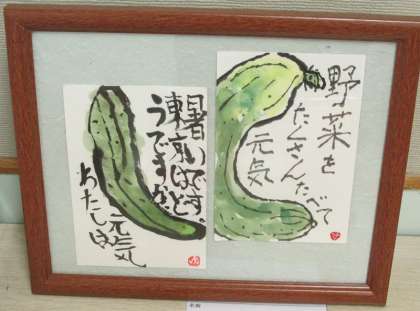 野菜を
たくさんたべて
元気
暑いです、
東京はど
うですか
わたしは
元気